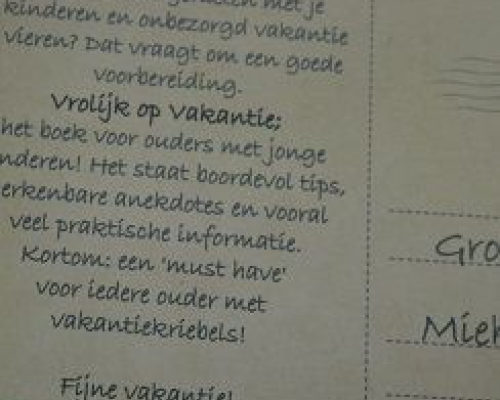 met je
kinderen en onbezorgd vakantie
vieren? Dat vraagt om een goede
voorbereiding.
Vrolijk op Vakantie;
het boek voor ouders met jonge
nderen! Het staat boordevol tips,
erkenbare anekdotes en vooral
veel praktische informatie.
Kortom: een 'must have'
voor iedere ouder met
vakantiekriebels!
Fijne vakantie!
Gro
Miek